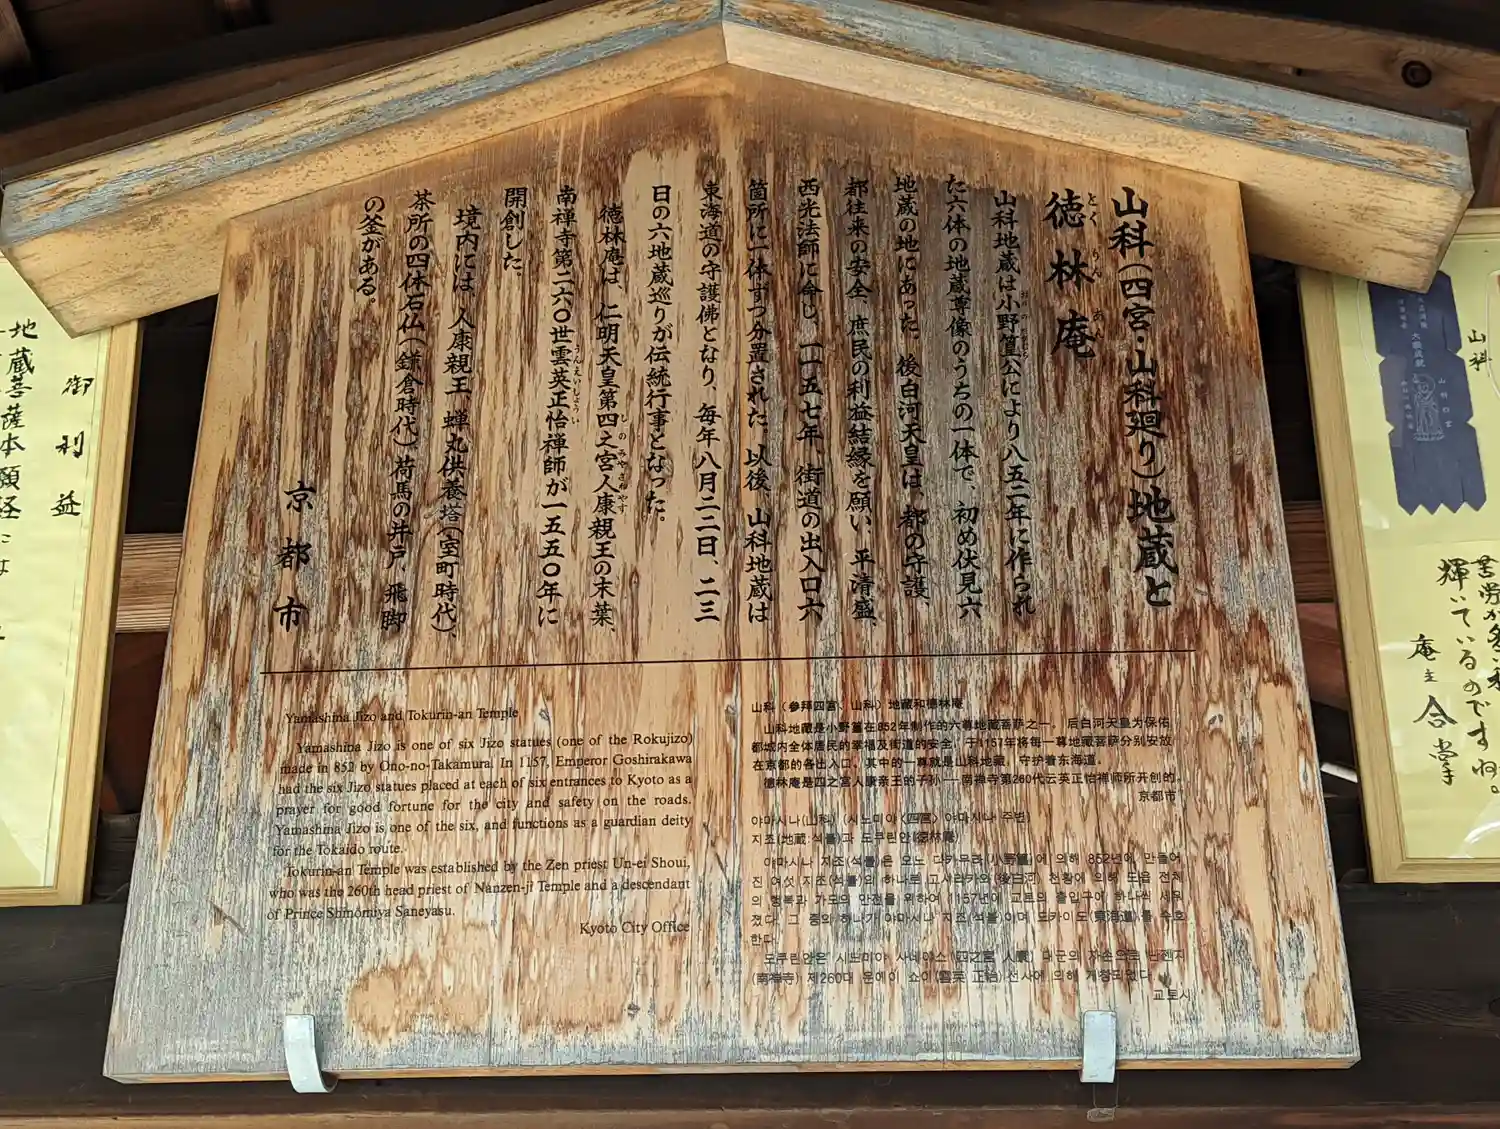 山科（四宮・山科廻り）地蔵と
徳林庵
とくりんあん
山科地蔵は小野篁公により八五二年に作られ
た六体の地蔵尊像のうちの一体で、初め伏見六
地蔵の地にあった。後白河天皇は、都の守護、
都往来の安全、庶民の利益結縁を願い、平清盛、
西光法師に命じ、一一五七年、街道の出入口六
箇所に一体ずつ分置された。以後、山科地蔵は
東海道の守護佛となり、毎年八月二二日、二三
日の六地蔵巡りが伝統行事となった。
徳林庵は、仁明天皇第四之宮人康親王の末葉、
しのみやさねやす
南禅寺第二六〇世雲英正怡禅師が一五五〇年に
うんえいしょうい
開創した。
境内には、人康親王、蝉丸供養塔（室町時代）、
茶所の四体石仏（鎌倉時代）、荷馬の井戸、飛脚
の釜がある。
京都市
Yamashina Jizo and Tokurin-an Temple
Yamashina Jizo is one of six Jizo statues (one of the Rokujizo)
made in 852 by Ono-no-Takamura. In 1157, Emperor Goshirakawa
had the six Jizo statues placed at each of six entrances to Kyoto as a
prayer for good fortune for the city and safety on the roads.
Yamashina Jizo is one of the six, and functions as a guardian deity
for the Tokaido route.
Tokurin-an Temple was established by the Zen priest Un-ei Shoui,
who was the 260th head priest of Nanzen-ji Temple and a descendant
of Prince Shinomiya Saneyasu.
Kyoto City Office
山科（参拜四宫、山科）地藏和德林庵
山科地藏是小野篁在852年制作的六尊地藏菩萨之一。后白河天皇为保佑
都城内全体居民的幸福及街道的安全，于1157年将每一尊地藏菩萨分别安放
在京都的各出入口。其中的一尊就是山科地藏，守护着东海道。
德林庵是四之宫人康亲王的子孙——南禅寺第260代云英正怡禅师所开创的。
京都市
야마시나(山科) (시노미야〈四宮〉 야마시나 주변)
지조(地蔵:석불)과 도쿠린안(徳林庵)
야마시나 지조(석불)은 오노 다카무라(小野篁)에 의해 852년에 만들어
진 여섯 지조(석불)의 하나로 고시라카와(後白河) 천황에 의해 도읍 전체
의 행복과 가도의 안전을 위하여 1157년에 교토의 출입구에 하나씩 세워
졌다. 그 중의 하나가 야마시나 지조(석불)이며 도카이도(東海道)를 수호
한다.
도쿠린안은 시노미야 사네야스(四之宮 人康) 대군의 자손으로 난젠지
(南禅寺) 제260대 운에이 쇼이(雲英 正怡) 선사에 의해 개창되었다.
교토시
御利益
地蔵菩薩本願経には
山科
輝いているのですね。
庵主 合掌